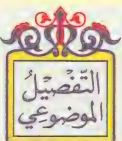 التَّفْصِيلُ
الْمَوْضُوعِي